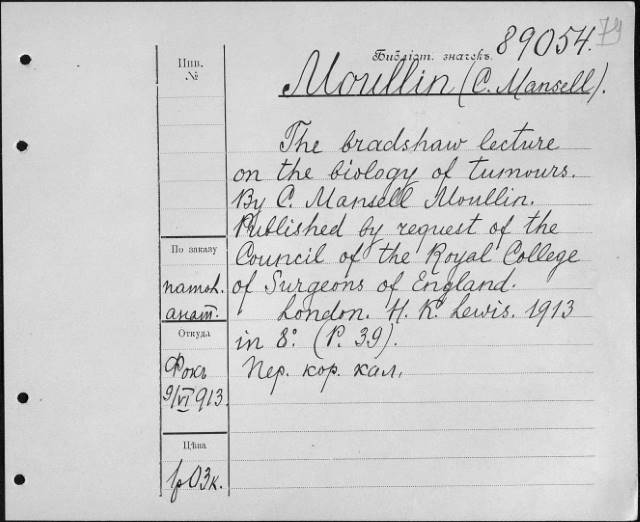 79
Библіот. значекъ. 89054.
Moullin (C. Mansell).
Инв.
№
The bradshaw lecture
on the biology of tumours.
By C. Mansell Moullin.
Published by request of the
Council of the Royal College
of Surgeons of England.
London. H. K. Lewis. 1913
in 8º. (P. 39).
Пер. кор. кал.
По заказу
патол.
анат.
Откуда
Фокъ
9/VI 913.
Цѣна
1р03к.